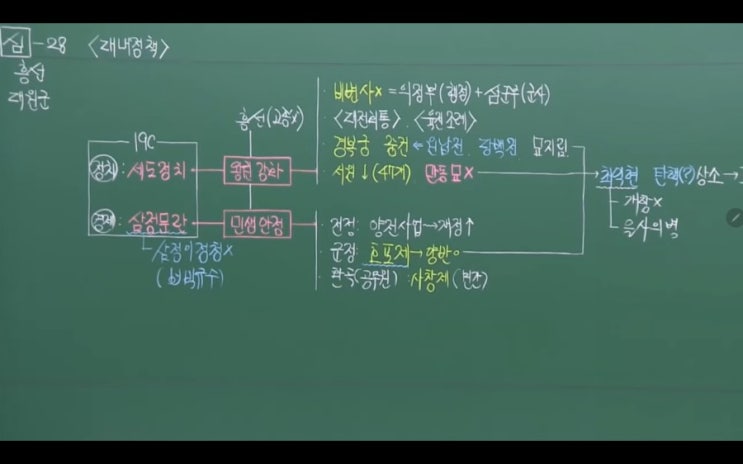 심 - 28 <대내정책>
흥선
대원군
19C
정치 : 세도정치
경제 : 삼정문란
삼정이정청×
(비박규수)
흥선(고종×)
왕권 강화
민생안정
· 비변사× = 의정부(행정) + 삼군부(군사)
· <대전회통> · <육전조례>
· 경복궁 중건 ← 원납전 당백전 묘지림
· 서원↓(47개) 만동묘×
· 전정 : 양전사업 → 재정↑
· 군정 : 호포제 → 양반○
· 환곡(공무원) : 사창제(민간)
최익현 탄핵(?)상소 →
개항×
을사의병